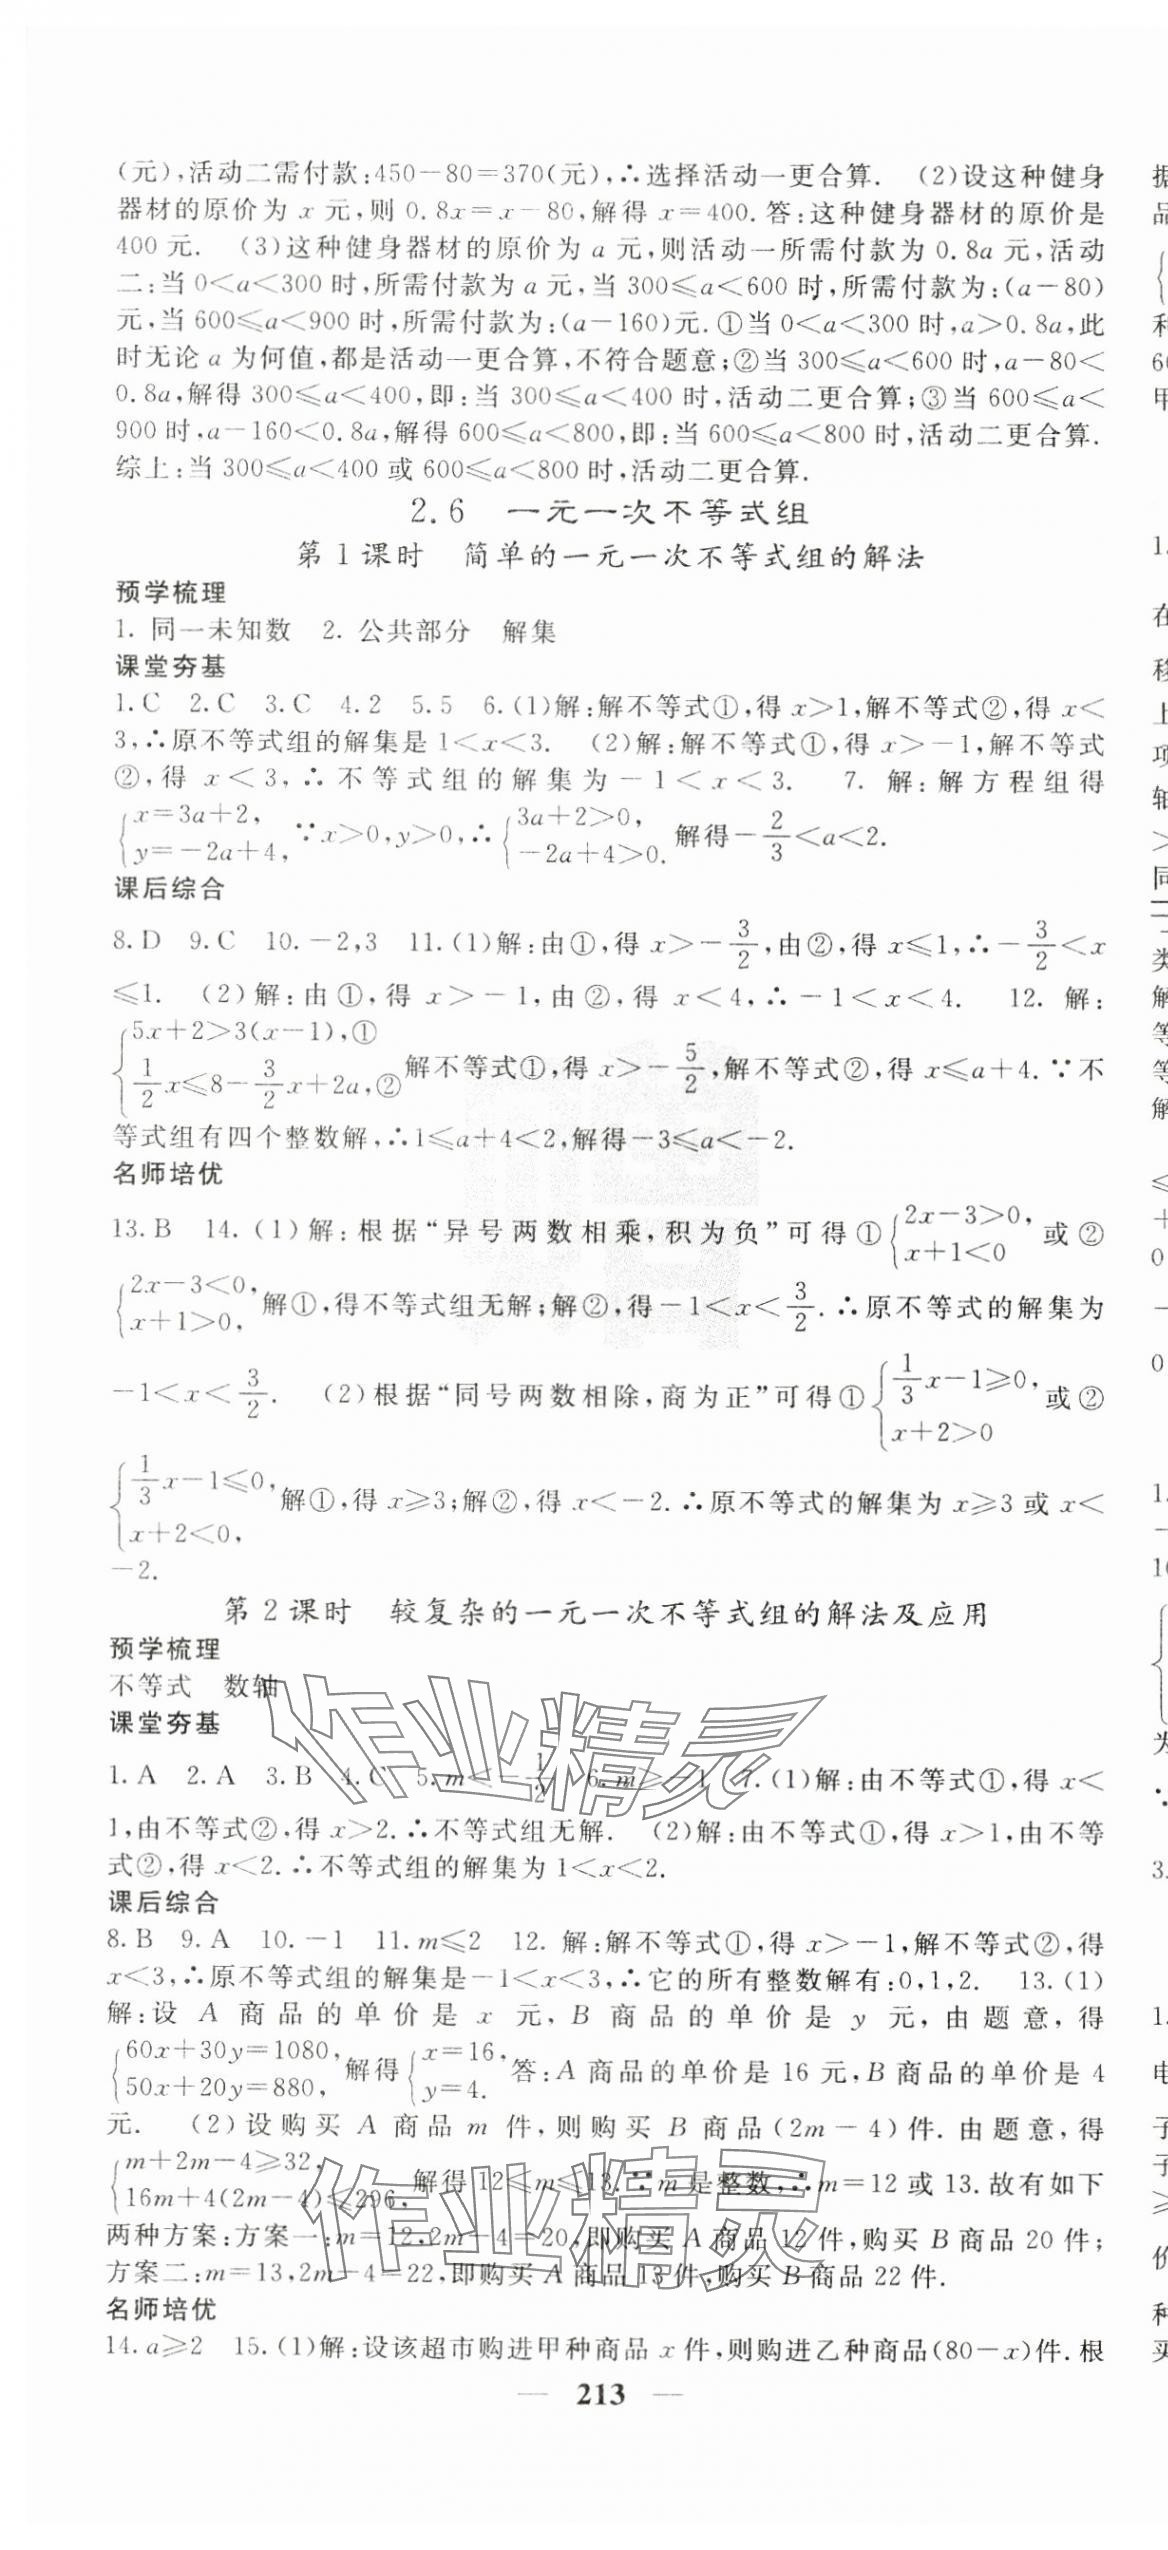 (元),活动二需付款:450-80=370(元),∴选择活动一更合算. (2)设这种健身
器材的原价为 x 元,则 0.8x=x-80,解得 x=400.答:这种健身器材的原价是
400 元. (3)这种健身器材的原价为 a 元,则活动一所需付款为 0.8a 元,活动
二:当 0<a<300 时,所需付款为 a 元,当 300≤a<600 时,所需付款为:(a-80)
元,当 600≤a<900 时,所需付款为:(a-160)元.①当 0<a<300 时,a>0.8a,此
时无论 a 为何值,都是活动一更合算,不符合题意;②当 300≤a<600 时,a-80<
0.8a,解得 300≤a<400,即:当 300≤a<400 时,活动二更合算;③当 600≤a<
900 时,a-160<0.8a,解得 600≤a<800,即:当 600≤a<800 时,活动二更合算.
综上:当 300≤a<400 或 600≤a<800 时,活动二更合算.
2.6 一元一次不等式组
第 1 课时 简单的一元一次不等式组的解法
预学梳理
1. 同一未知数 2. 公共部分 解集
课堂夯基
1.C 2.C 3.C 4.2 5.5 6.(1)解:解不等式①,得 x>1,解不等式②,得 x<
3,∴原不等式组的解集是 1<x<3. (2)解:解不等式①,得 x>-1,解不等式
②,得 x<3,∴不等式组的解集为-1<x<3. 7. 解:解方程组得
{x=3a+2, y=-2a+4, ∵x>0,y>0,∴{3a+2>0, -2a+4>0. 解得-2/3<a<2.
课后综合
8.D 9.C 10.-2,3 11.(1)解:由①,得 x>-3/2,由②,得 x≤1,∴-3/2<x
≤1. (2)解:由①,得 x>-1,由②,得 x<4,∴-1<x<4. 12. 解:
{5x+2>3(x-1),① 1/2x≤8-3/2x+2a,② 解不等式①,得 x>-5/2,解不等式②,得 x≤a+4.∵不
等式组有四个整数解,∴1≤a+4<2,解得-3≤a<-2.
名师培优
13.B 14.(1)解:根据“异号两数相乘,积为负”可得①{2x-3>0, x+1<0 或②
{2x-3<0, x+1>0, 解①,得不等式组无解;解②,得-1<x<3/2.∴原不等式的解集为
-1<x<3/2. (2)根据“同号两数相除,商为正”可得①{1/3x-1≥0, x+2>0 或②
{1/3x-1≤0, x+2<0, 解①,得 x≥3;解②,得 x<-2.∴原不等式的解集为 x≥3 或 x<
-2.
第 2 课时 较复杂的一元一次不等式组的解法及应用
预学梳理
不等式 数轴
课堂夯基
1.A 2.A 3.B 4.C 5.m< 1/2 6.m≥-1 7.(1)解:由不等式①,得 x<
1,由不等式②,得 x>2.∴不等式组无解. (2)解:由不等式①,得 x>1,由不等
式②,得 x<2.∴不等式组的解集为 1<x<2.
课后综合
8.B 9.A 10.-1 11.m≤2 12. 解:解不等式①,得 x>-1,解不等式②,得
x<3,∴原不等式组的解集是-1<x<3,∴它的所有整数解有:0,1,2. 13.(1)
解:设 A 商品的单价是 x 元,B 商品的单价是 y 元,由题意,得
{60x+30y=1080, 50x+20y=880, 解得{x=16, y=4. 答:A 商品的单价是 16 元,B 商品的单价是 4
元. (2)设购买 A 商品 m 件,则购买 B 商品(2m-4)件.由题意,得
{m+2m-4≥32, 16m+4(2m-4)≤296, 解得 12≤m≤13.∵m 是整数,∴m=12 或 13.故有如下
两种方案:方案一:m=12,2m-4=20,即购买 A 商品 12 件,购买 B 商品 20 件;
方案二:m=13,2m-4=22,即购买 A 商品 13 件,购买 B 商品 22 件.
名师培优
14.a≥2 15.(1)解:设该超市购进甲种商品 x 件,则购进乙种商品(80-x)件.根
— 213 —
作业精灵
作业精灵